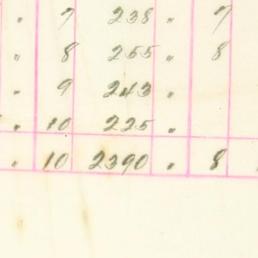 " 7 238 " 7
" 8 255 " 8
" 9 243 "
" 10 225 "
" 10 2390 " 8